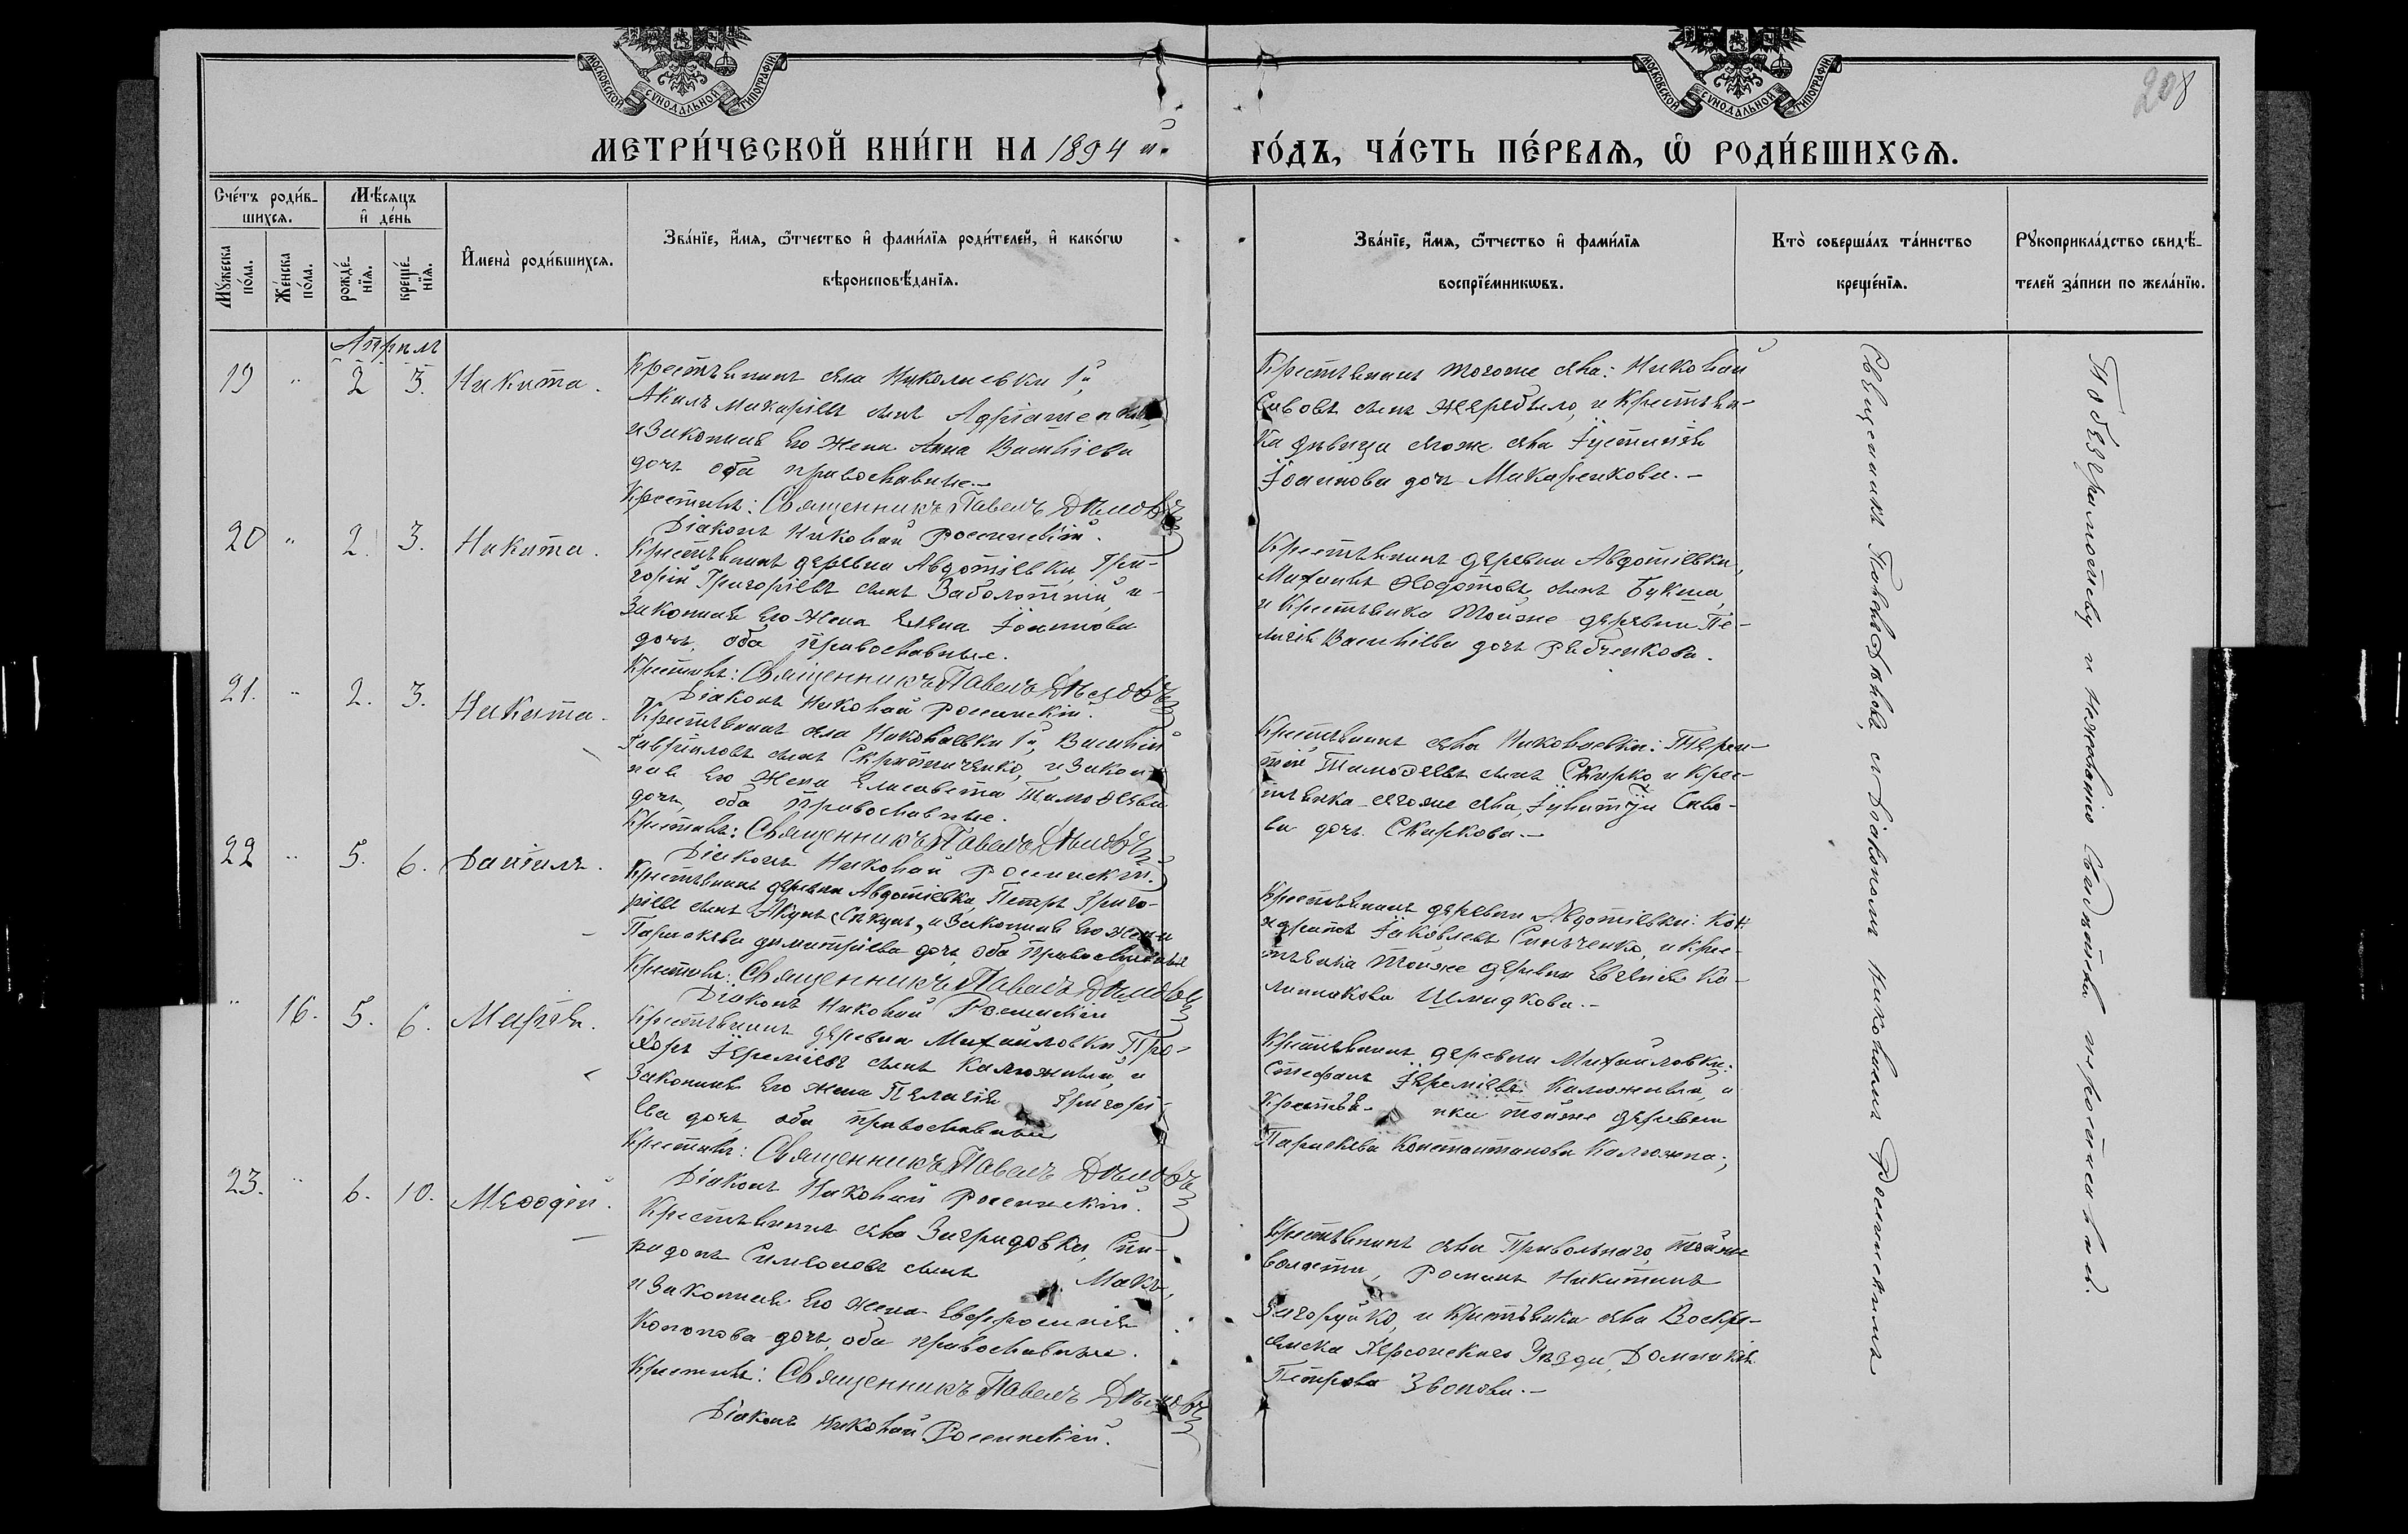 МОСКОВСКОЙ СУНОДАЛЬНОЙ ТИПОГРАФІИ
МОСКОВСКОЙ СУНОДАЛЬНОЙ ТИПОГРАФІИ
208
МЕТРИ́ЧЕСКОЙ КНИ́ГИ НА 1894 й.
ГО́ДЪ, ЧА́СТЬ ПЕ́РВАЯ, Ѡ҆ РОДИ́ВШИХСЯ.
Сче́тъ роди́в-
шихся.
Мѣ́сяцъ
и҆ де́нь
Мꙋ́жеска
по́ла.
Же́нска
по́ла.
рожде́-
нїѧ.
креще́-
нїѧ.
И҆мена̀ роди́вшихся.
Зва́нїе, и҆́мя, ѻ҆́тчество и҆ фами́лїя роди́телей, и҆ како́гѡ
вѣроисповѣ́данїя.
Зва́нїе, и҆́мя, ѻ҆́тчество и҆ фами́лїя
воспрїе́мникѡвъ.
Кто̀ соверша́лъ та́инство
креще́нїя.
Рꙋкоприкла́дство свидѣ́-
телей за́писи по жела́нїю.
Апрѣль
19 " 2 3. Никита.
Крестьянинъ села Николаевки 1й,
Акилъ Макаріевъ сынъ
и законная его жена Анна Василіева
дочь оба православные.-
Крестилъ: Священникъ Павелъ
Діаконъ Николай Россинскій.
Крестьянинъ тогоже села: Николай
Савовъ сынъ Жеребило, и крестьян-
ка дѣвица тогоже села Іустинія
Іоаннова дочь Макаренкова.-
20 " 2. 3. Никита.
Крестьянинъ деревни Авдотіевки, Гри-
горій Григоріевъ сынъ Заболотный, и
законная его жена Елена Іоаннова
дочь, оба православные.
Крестилъ: Священникъ Павелъ
Діаконъ Николай Россинскій.
Крестьянинъ деревни Авдотіевки,
Михаилъ Ѳедотовъ сынъ Букша,
и крестьянка тойже деревни Пе-
лагія Василіева дочь Рябченкова.
21. " 2. 3. Никита.
Крестьянинъ села Николаевки 1й, Василій
Гавріиловъ сынъ Скрипниченко, и закон-
ная его жена Елисавета Тимоѳеева
дочь, оба православные.
Крестилъ: Священникъ Павелъ
Діаконъ Николай Россинскій.
Крестьянинъ села Николаевки: Терен-
тій Тимоѳеевъ сынъ Скирко и крес-
тьянка тогоже села, Іулитта Саво-
ва дочь Скиркова.-
22 " 5. 6. Даніилъ.
Крестьянинъ деревни Авдотіевки, Петръ Григо-
ріевъ сынъ и законная его жена
Параскева Димитріева дочь, оба православные
Крестилъ: Священникъ Павелъ
Діаконъ Николай Россинскій
Крестьянинъ деревни Авдотіевки: Кон-
дратъ Іаковлевъ и крес-
тьянка тойже деревни Евгенія Ка-
линикова Шмидкова.-
" 16. 5. 6. Марѳа.
Крестьянинъ деревни Михайловки, Про-
хоръ Іереміевъ сынъ Калюжный, и
законная его жена Пелагія Григорі-
ева дочь, оба православные
Крестилъ: Священникъ Павелъ
Діаконъ Николай Россинскій.
Крестьянинъ деревни Михайловки:
Стефанъ Іереміевъ Калюжный, и
крестья- нка тойже деревни
Параскева Константинова Калюжна;
23. " 6. 10. Меѳодій.
Крестьянинъ села Заградовки, Спи-
ридонъ Симеоновъ сынъ Макъ,
и законная его жена Евфросинія
Кононова дочь, оба православные.
Крестилъ: Священникъ Павелъ
Діаконъ Николай Россинскій.
Крестьянинъ села Привольнаго, тойже
волости, Романъ Никитинъ
и крестьянка села Воскре-
сенска Херсонскаго Уѣзда, Домникія
Петрова Звонова.-
Священникъ Павелъ съ Діакономъ Николаемъ Россинскимъ
По безграмотству и нежеланію свидѣтели неподписались.